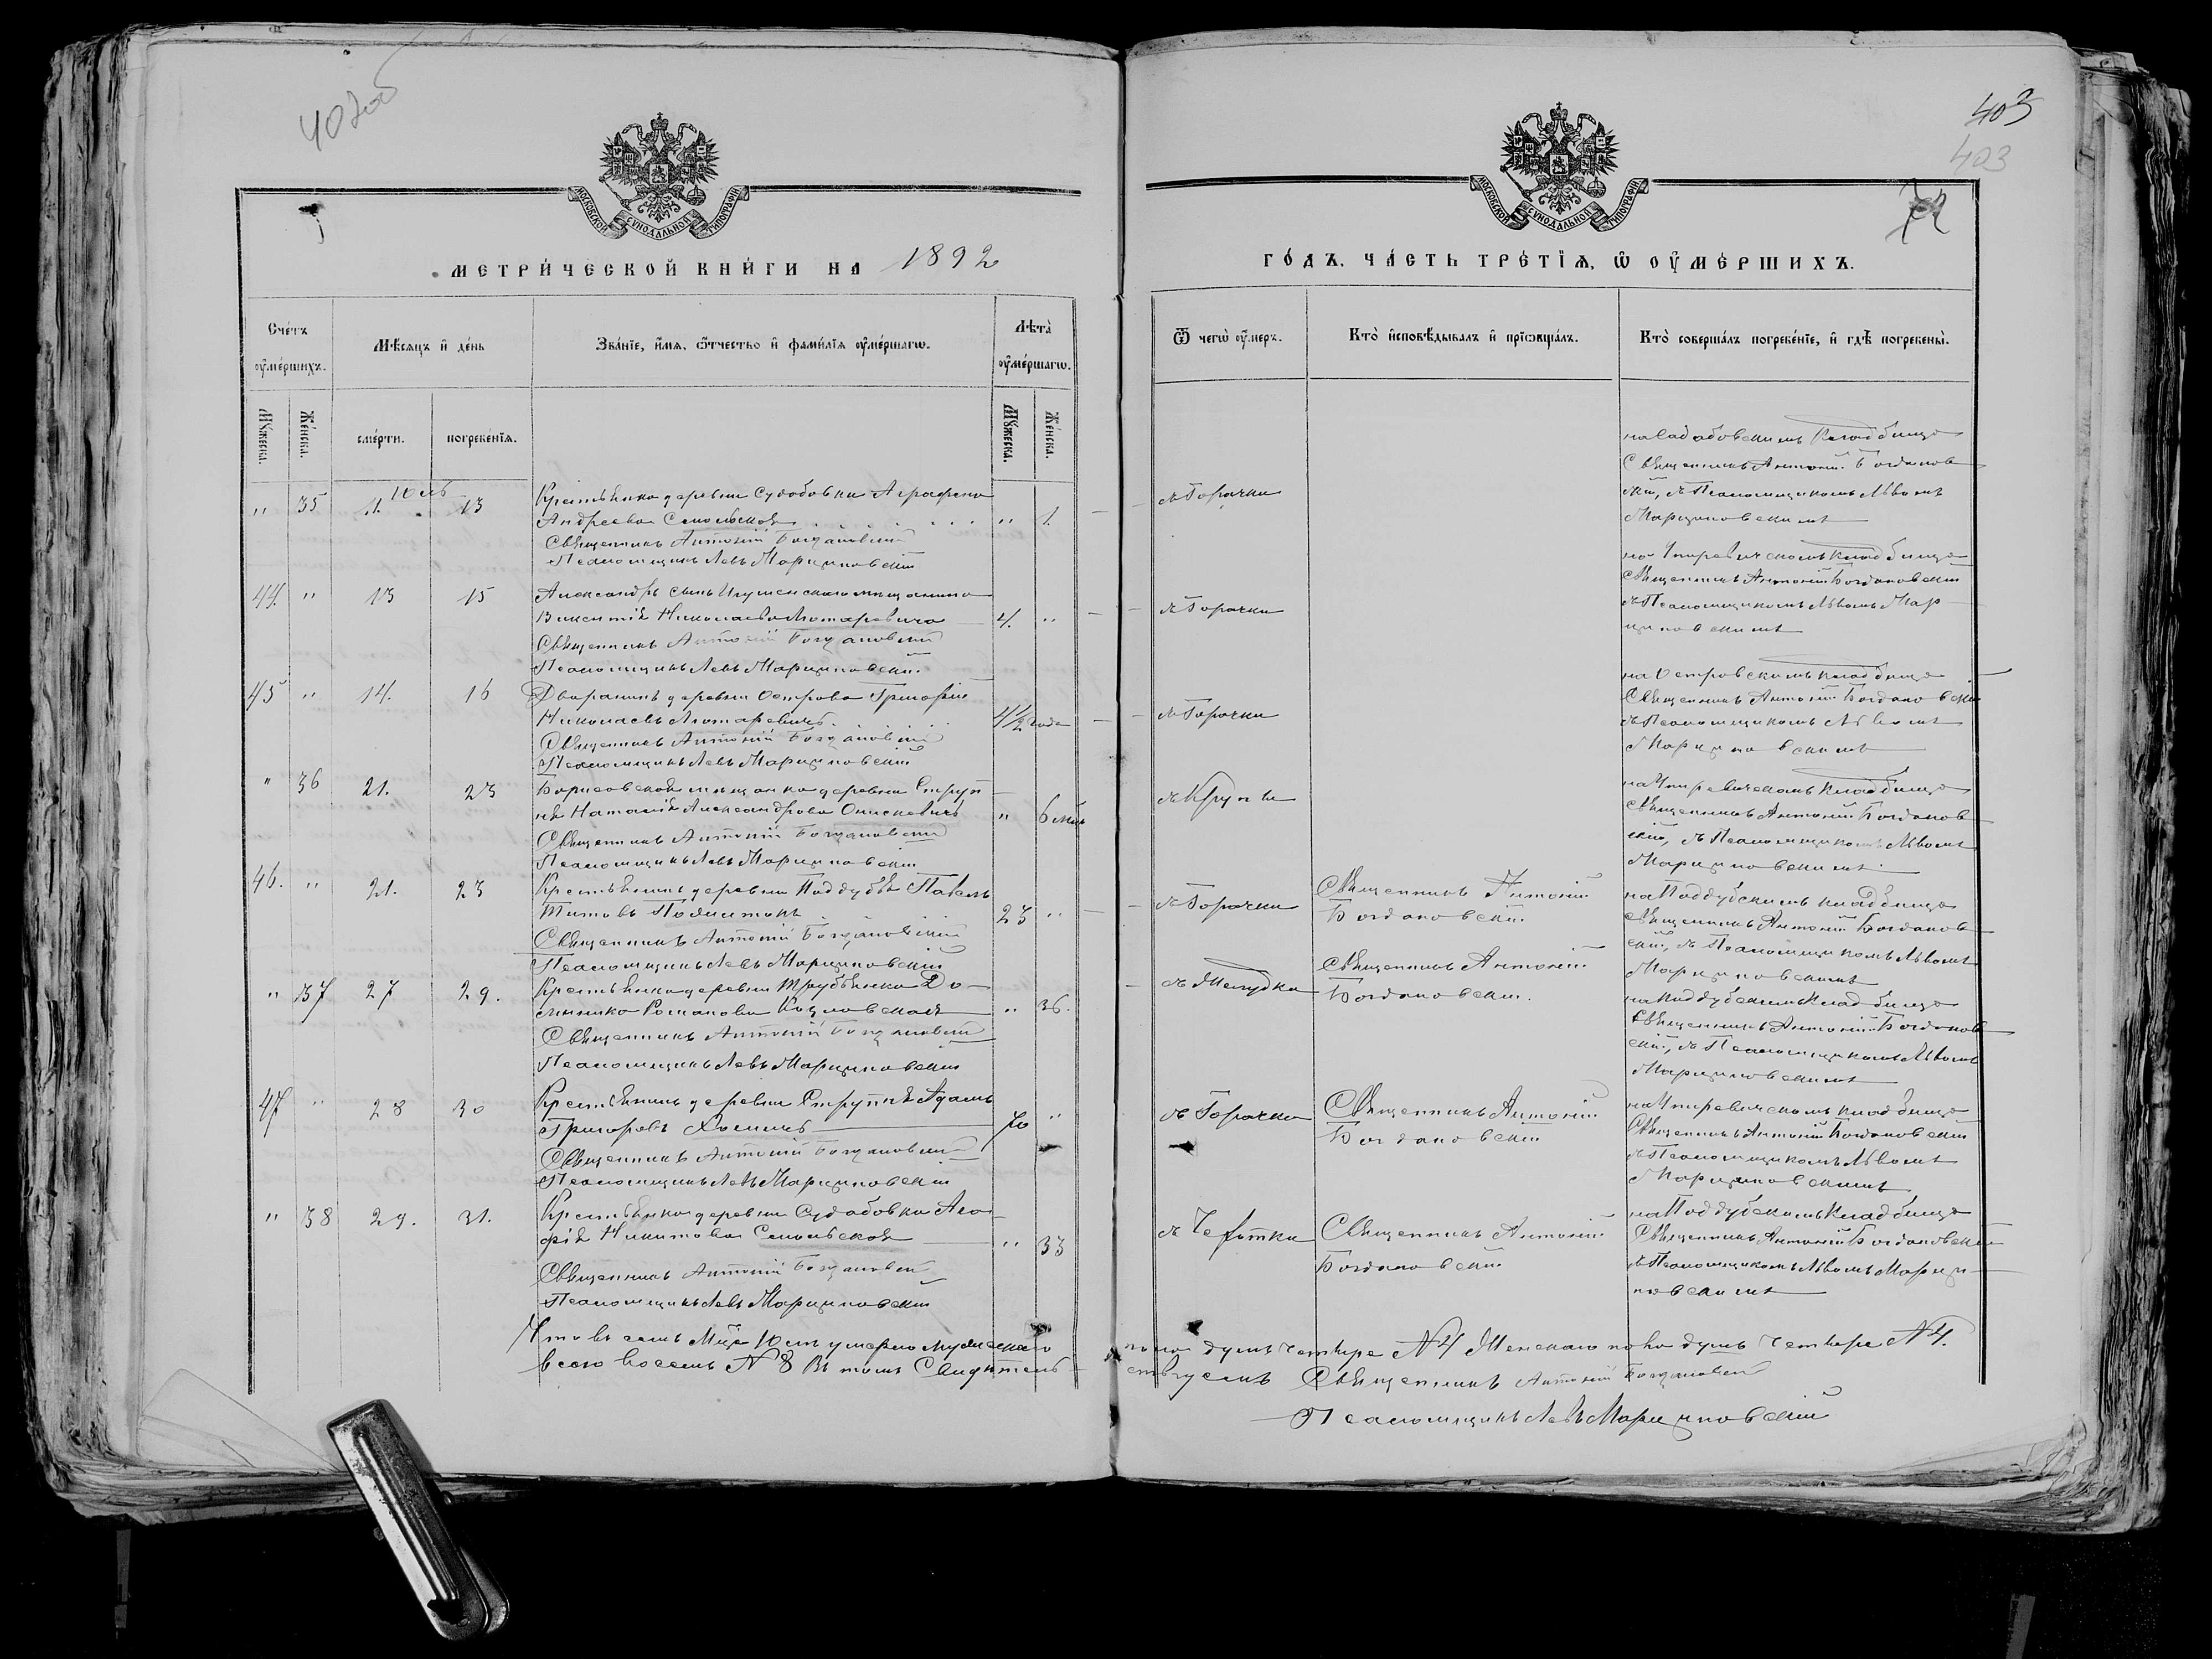 402об
403
403
МОСКОВСКОЙ СѴНОДАЛЬНОЙ ТИПОГРАФІИ
МОСКОВСКОЙ СѴНОДАЛЬНОЙ ТИПОГРАФІИ
МЕТРИ́ЧЕСКОЙ КНИ́ГИ НА 1892
ГО́ДЪ, ЧА́СТЬ ТРЕ́ТІѦ, Ѡ ОУ҆МЕ́РШИХЪ.
Сче́тъ оу҆ме́ршихъ.
Мѣ́сяцъ и҆ де́нь
Зва́нїе, и҆́мя, ѻ҆́тчество и҆ фами́лїя оу҆ме́ршагѡ.
Лѣта̀ оу҆ме́ршагѡ.
Ѿ чегѡ̀ оу҆́меръ.
Кто̀ и҆сповѣ́дывалъ и҆ прїѡбща́лъ.
Кто̀ соверша́лъ погребе́нїе, и҆ гдѣ̀ погребены̀.
Мꙋ́жеска.
Же́нска.
сме́рти.
погребе́нїя.
Мꙋ́жеска.
Же́нска.
Юль
" 35 11. 13 Крестьянка деревни Судобовки Аграфена
Андреева " 1.
Священникъ Антоній Богдановскій
Псаломщикъ Левъ Марциновскій
съ Горячки
кладбище
Священникъ Антоній Богданов
скій, съ Псаломщикомъ Львомъ
Марциновскимъ
44. " 13 15 Александръ сынъ Игуменскаго мещанина
Викентія Николаева Лютаревича 4. "
Священникъ Антоній Богдановскій
Псаломщикъ Левъ Марциновскій
съ Горячки
на Упиревическомъ кладбище
Священникъ Антоній Богдановскій
съ Псаломщикомъ Львомъ Мар
циновскимъ
45 " 14. 16 Дворянинъ деревни Острова Григорій
Николаевъ Лютаревичъ. 4½ года
Священникъ Антоній Богдановскій
Псаломщикъ Левъ Марциновскій
съ Горячки
на Островскомъ кладбище
Священникъ Антоній Богдановскій
съ Псаломщикомъ Львомъ
Марциновскимъ
" 36 21. 23 Борисовская мещанка деревни Ступп
нѣ Наталія Александрова Онискевичъ " 6 мѣс
Священникъ Антоній Богдановскій
Псаломщикъ Левъ Марциновскій
съ Крупы
на Упиревическомъ кладбище
Священникъ Антоній Богданов
скій, съ Псаломщикомъ Львомъ
Марциновскимъ
46. " 21. 23 Крестьянинъ деревни Поддубье Павелъ
Титовъ 23 "
Священникъ Антоній Богдановскій
Псаломщикъ Левъ Марциновскій
съ Горячки
Священникъ Антоній
Богдановскій
на Поддубскомъ кладбище
Священникъ Антоній Богданов
скій, съ Псаломщикомъ Львомъ
Марциновскимъ
" 37 27 29. Крестьянка деревни До
миника Романова Козловская " 36.
Священникъ Антоній Богдановскій
Псаломщикъ Левъ Марциновскій
съ Желудка
Священникъ Антоній
Богдановскій.
на Поддубскомъ кладбище
Священникъ Антоній Богданов
скій, съ Псаломщикомъ Львомъ
Марциновскимъ
47 " 28 30 Крестьянинъ деревни Адамъ
Григоровъ Хоминъ 70 "
Священникъ Антоній Богдановскій
Псаломщикъ Левъ Марциновскій
съ Горячки
Священникъ Антоній
Богдановскій
на Упиревическомъ кладбище
Священникъ Антоній Богдановскій
съ Псаломщикомъ Львомъ
Марциновскимъ
" 38 29. 31. Крестьянка деревни Судобовки Ага
фія Никитова " 33
Священникъ Антоній Богдановскій
Псаломщикъ Левъ Марциновскій
съ Чахотки
Священникъ Антоній
Богдановскій
на Поддубскомъ кладбище
Священникъ Антоній Богдановскій
съ Псаломщикомъ Львомъ Марци
новскимъ
Что въ семъ Мцѣ Юлѣ умерло мужескаго пола душъ четыре №4 Женскаго пола душъ четыре №4.
всего восемь №8 Въ томъ Свидетельствуемъ Священникъ Антоній Богдановскій
Псаломщикъ Левъ Марциновскій